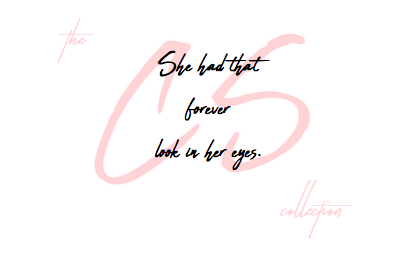 the
CS
She had that
forever
look in her eyes.
collection